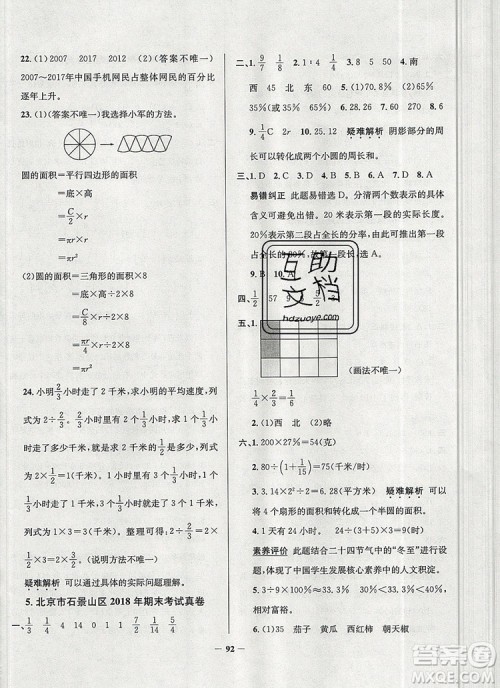 22. (1)2007 2017 2012 (2)(答案不唯一)
2007~2017年中国手机网民占整体网民的百分比
逐年上升。
23. (1)(答案不唯一)我选择小军的方法。
圆的面积=平行四边形的面积
=底×高
=C/2×r
=πr/1×r
=πr²
(2)圆的面积=三角形的面积×8
=底×高÷2×8
=C/8×r÷2×8
=πr/4×r÷2×8
=πr²
24. 小明2/3小时走了2千米,求小明的平均速度,
列式:2÷2/3。小明2/3小时走了2千米,求1/3小时
走了多少千米,就是求2千米的1/2是多少,列式:
2×1/2=1(千米)。1/3小时走了1千米,求1小时
走了多少千米,就是求3个1千米是多少千米,
列式:1×3=3(千米)。整理可得:2÷2/3=2×
1/2×3=2×3/2=3。(说明方法不唯一)
疑难解析 可以通过具体的实际问题来理解。
5. 北京市石景山区2018年期末考试真卷
一、1/3 1/4 4 2/3 2 1/14 3/2 1/9
二、1. 9/7 1/9 2. 1:4 4/5 3. > < > 4. 南
西 45 北 东 60 5. (1)70.8% (2)65%
35%(或35% 65%) 6. 20 7. 37.68 28.26 8. 6
9. 1/4 C 2r r 10. 25.12 疑难解析 阴影部分的
周长可以转化成两个小圆的周长和。
三、1. D 2. D 3. B 4. A 5. C 6. C 7. C 8. A
易错纠正 此题易错选D。分清两个数表示的具体
含义可避免出错。20米表示第一段的实际长度。
20%表示第二段占全长的分率,由此推出第一段占
全长的80%,故第一段长,选A。
9. B 10. A
四、1/2 57 9
五、1.
(画法不唯一)
1/4×2/3=1/6
2. (1)西 北 (2)略
六、1. 200×27%=54(克)
2. 80÷(1+1/15)=75(千米/小时)
3. 3.14×2²÷2=6.28(平方米) 疑难解析 可以将
4个扇形的面积和转化成一个半圆的面积。
4. 1天有24小时。24÷(3/5+1)=15(小时)
素养评价 此题结合二十四节气中的“冬至”进行考
查,体现了中国学生发展核心素养中的人文积淀。
5. (1)100%
(2)54.4%>50%,答:2017年该地区居民生活水平
相对富裕。
6. (1)35 茄子 黄瓜 西红柿 朝天椒
92
互助文档
hdzuoye.com
答案圈
MXQE.COM